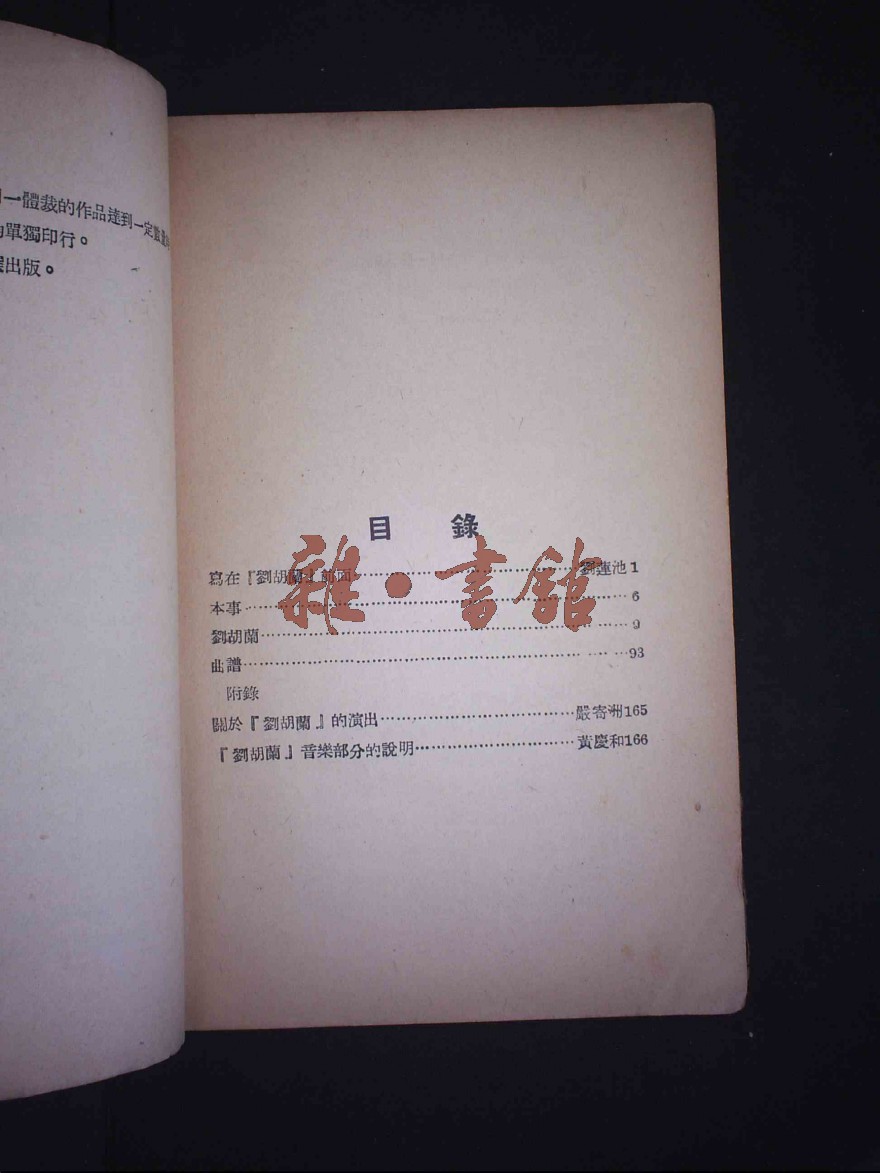 一體裁的作品達到一定數量
單獨印行。
出版。
目錄
寫在『劉胡蘭』前面……劉蓮池1
本事……6
劉胡蘭……9
曲譜……93
附錄
關於『劉胡蘭』的演出……嚴寄洲165
『劉胡蘭』音樂部分的說明……黃慶和166
雜·書館